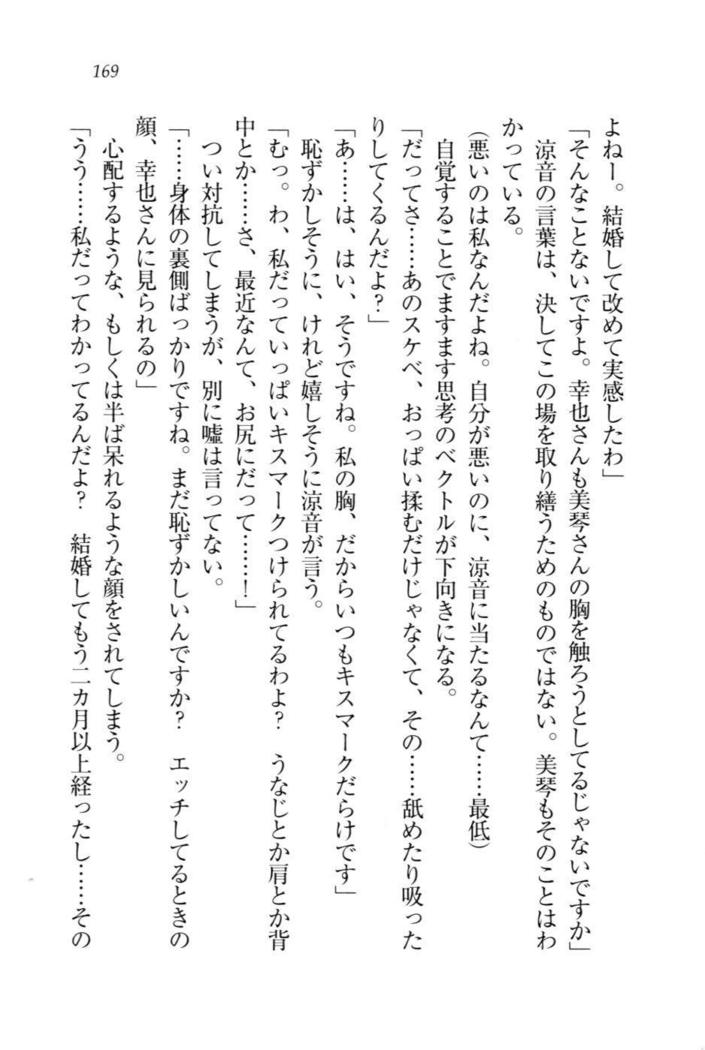 169
よねー。結婚して改めて実感したわ」
「そんなことないですよ。幸也さんも美琴さんの胸を触ろうとしてるじゃないですか」
涼音の言葉は、決してこの場を取り繕うためのものではない。美琴もそのことはわ
かっている。
(悪いのは私なんだよね。自分が悪いのに、涼音に当たるなんて……最低)
自覚することでますます思考のベクトルが下向きになる。
「だってさ……あのスケベ、おっぱい揉むだけじゃなくて、その……舐めたり吸った
りしてくるんだよ?」
「あ……は、はい、そうですね。私の胸、だからいつもキスマークだらけです」
恥ずかしそうに、けれど嬉しそうに涼音が言う。
「むっ。わ、私だっていっぱいキスマークつけられてるわよ? うなじとか肩とか背
中とか……さ、最近なんて、お尻にだって……!」
つい対抗してしまうが、別に嘘は言ってない。
「……身体の裏側ばっかりですね。まだ恥ずかしいんですか? エッチしてるときの
顔、幸也さんに見られるの」
心配するような、もしくは半ば呆れるような顔をされてしまう。
「うう……私だってわかってるんだよ? 結婚してもう二カ月以上経ったし……その